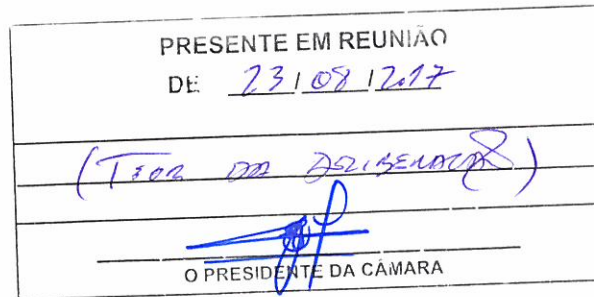 PRESENTE EM REUNIÃO
DE 23/08/2017
(TEOR DA DELIBERAÇÃO)
O PRESIDENTE DA CÂMARA